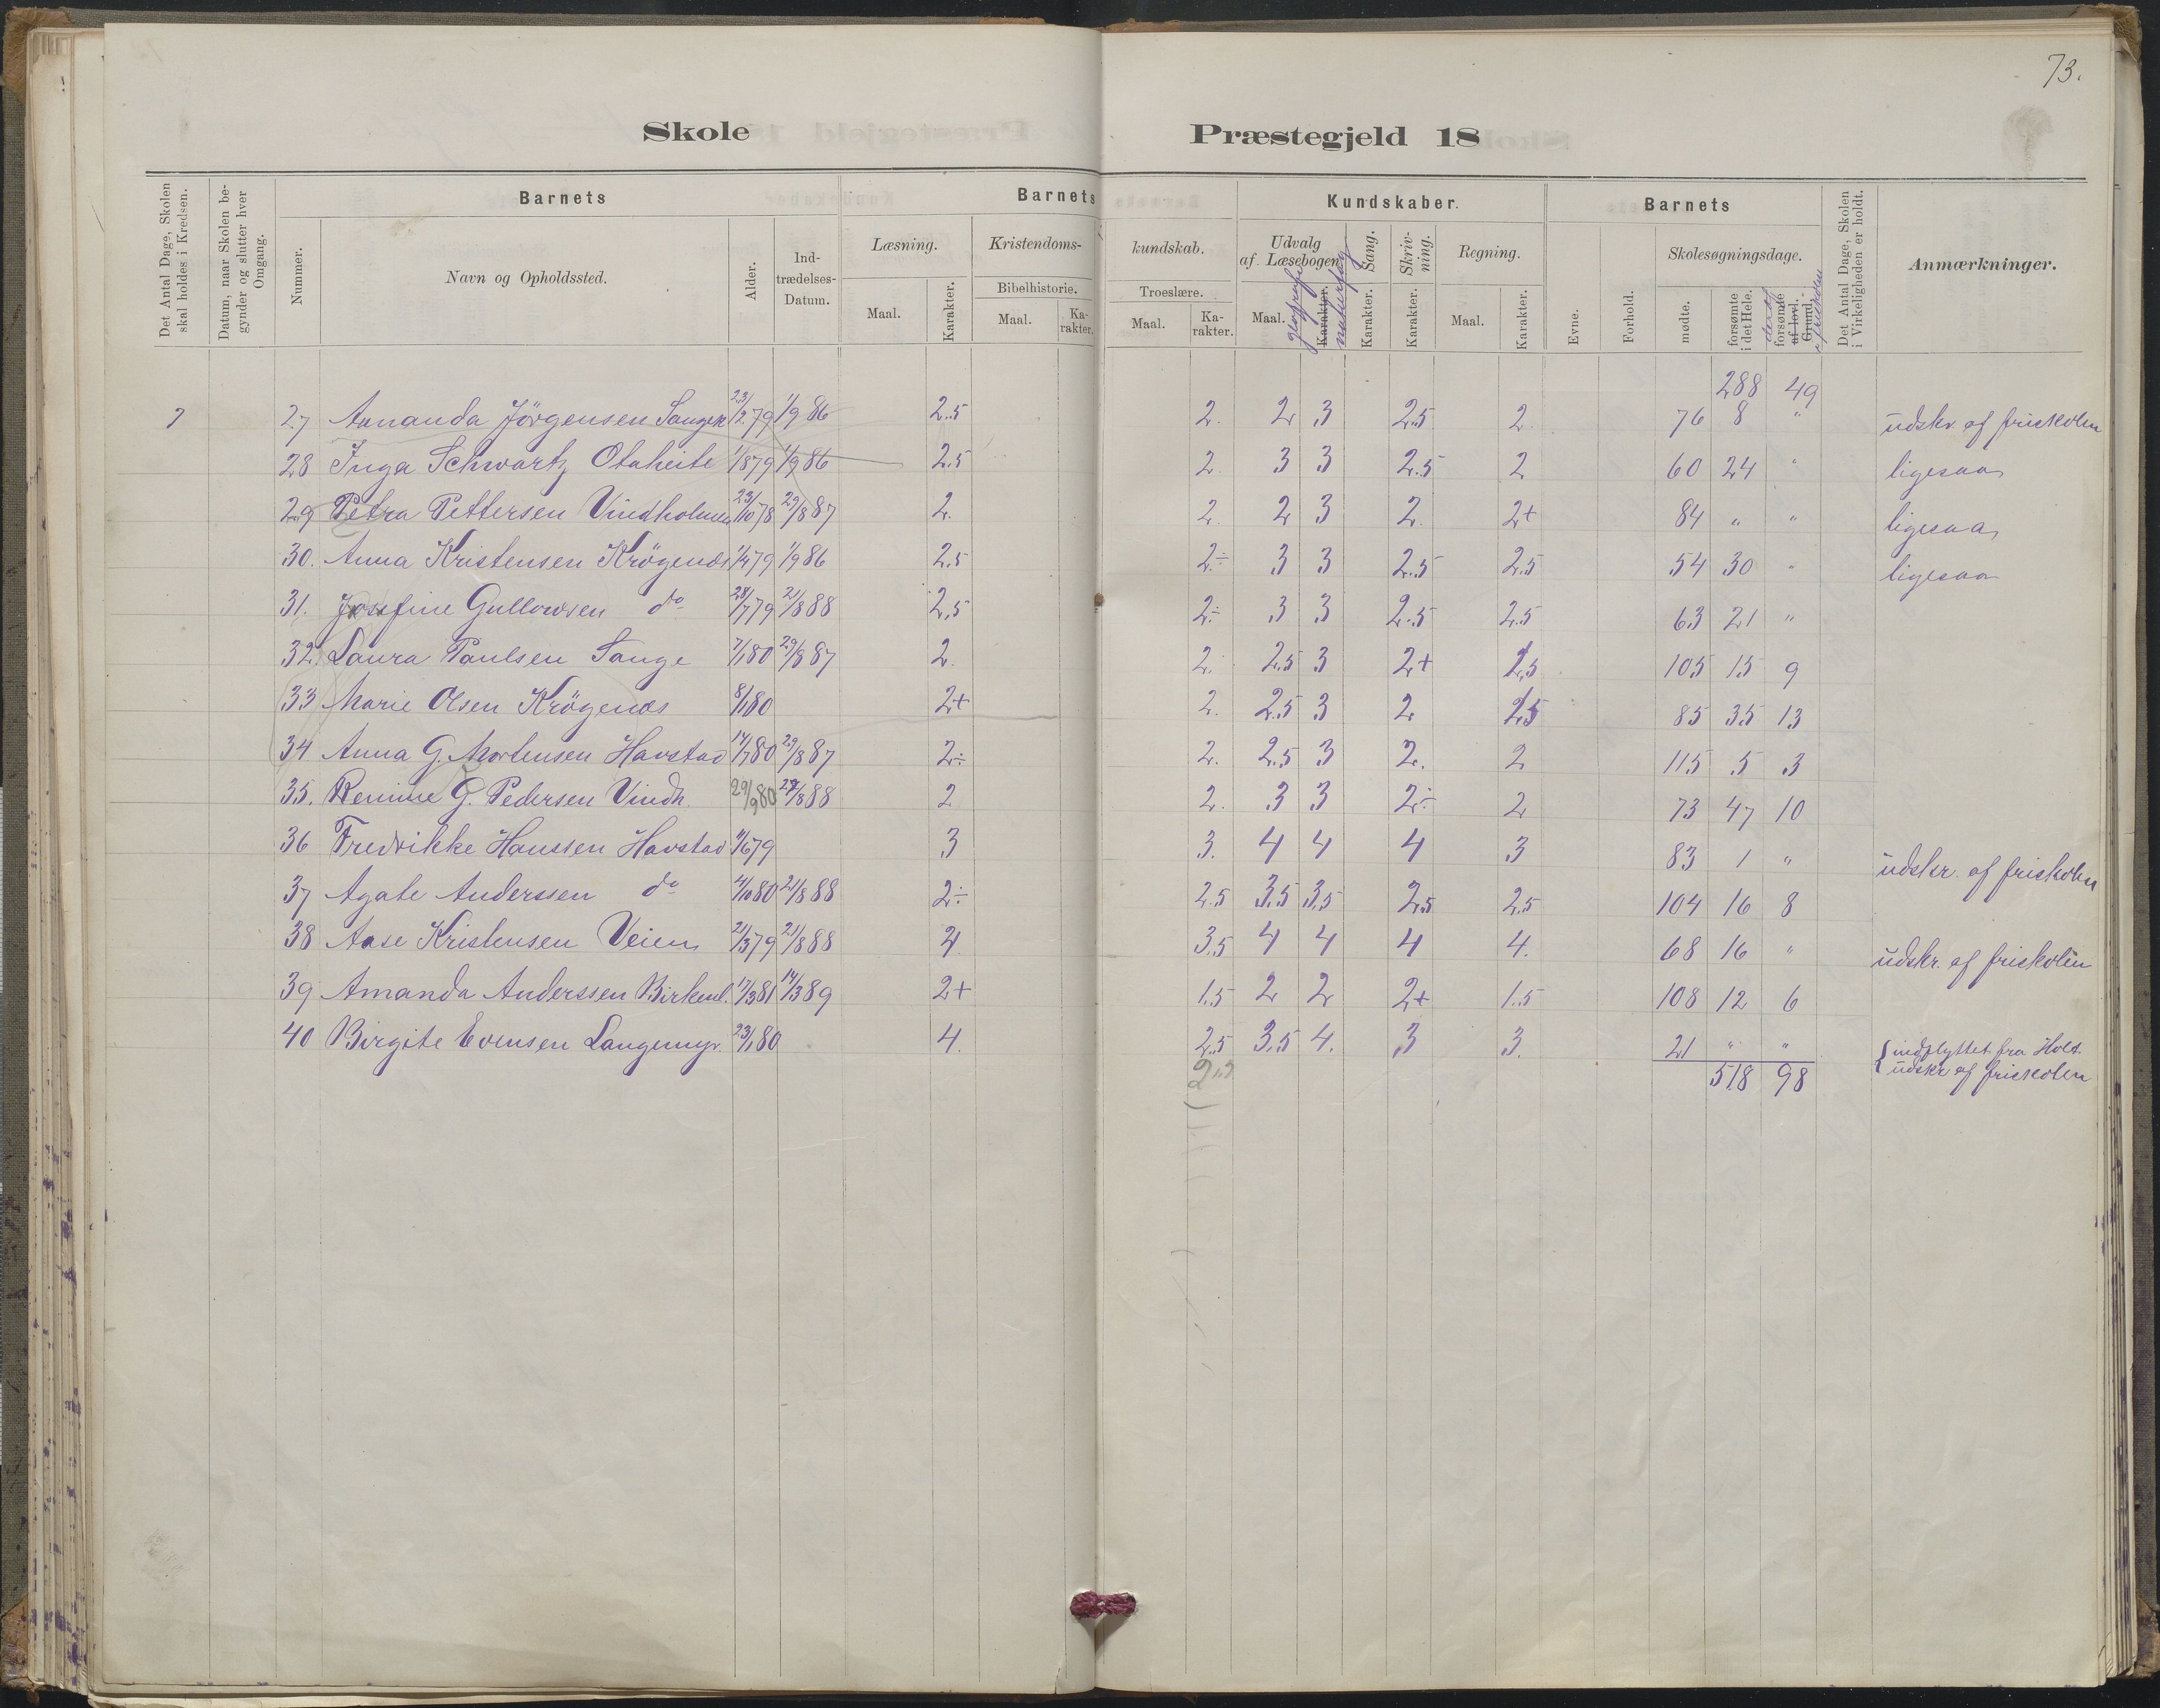 73.
Skole Præstegjeld 18
Det Antal Dage, Skolen skal holdes i Kredsen.
Datum, naar Skolen begynder og slutter hver Omgang.
Barnets
Nummer.
Navn og Opholdssted.
Alder.
Ind-
trædelses-
Datum.
Barnets Kundskaber.
Læsning.
Maal.
Karakter.
Kristendoms-
kundskab.
Bibelhistorie.
Maal.
Ka-
rakter.
Troeslære.
Maal.
Ka-
rakter.
Udvalg
af Læsebogen
Maal.
geografi
Karakter.
naturfag
Sang.
Karakter.
Skriv-
ning.
Karakter.
Regning.
Maal.
Karakter.
Barnets
Evne.
Forhold.
Skolesøgningsdage.
mødte.
forsømte
i det Hele.
deraf
forsømte
af lovl.
Grund.
i friskolen
Det Antal Dage, Skolen
i Virkeligheden er holdt.
Anmærkninger.
288 49
7 27 Amanda Jörgensen Songek 23/12 79 1/9 86 2.5 2. 2 3 2.5 2. 76 8 " udskr. af friskolen
28 Inga Schwartz Otaheite 1/8 79 1/9 86 2.5 2. 3 3 2.5 2 60 24 " ligesaa
29 Petra Pettersen Vindholmen 23/10 78 29/8 87 2. 2. 2 3 2. 2+ 84 " " ligesaa
30. Anna Kristensen Krögenæs 1/4 79 1/9 86 2.5 2÷ 3 3 2.5 2.5 54 30 " ligesaa
31. Josefine Gullowsen do 28/7 79 21/8 88 2,5 2÷ 3 3 2.5 2.5 63 21 "
32. Laura Paulsen Songe 7/1 80 29/8 87 2. 2. 2.5 3 2+ 1,5 105 15 9
33 Marie Olsen Krögenæs 8/1 80 2+ 2. 2.5 3 2 2.5 85 35 13
34 Anna G. Mortensen Havstad 14/7 80 29/8 87 2÷ 2. 2.5 3 2. 2 115 5 3
35. Remine G. Pedersen Vindh. 29/9 80 27/8 88 2 2. 3 3 2÷ 2 73 47 10
36 Fredrikke Hanssen Havstad 1/6 79 3 3. 4 4 4 3 83 1 " udskr. af friskolen
37 Agate Anderssen do 4/10 80 21/8 88 2÷ 2.5 3.5 3.5 2.5 2.5 104 16 8
38 Aase Kristensen Veien 21/3 79 21/8 88 4. 3.5 4 4 4 4. 68 16 " udskr. af friskolen
39 Amanda Anderssen Birkenl. 17/3 81 14/3 89 2+ 1.5 2 2 2+ 1.5 108 12 6
40 Birgite Evensen Langemyr. 23/1 80 4. 2.5 3,5 4. 3 3. 21 " " indflyttet fra Holt.
udskr. af friskolen
518 98